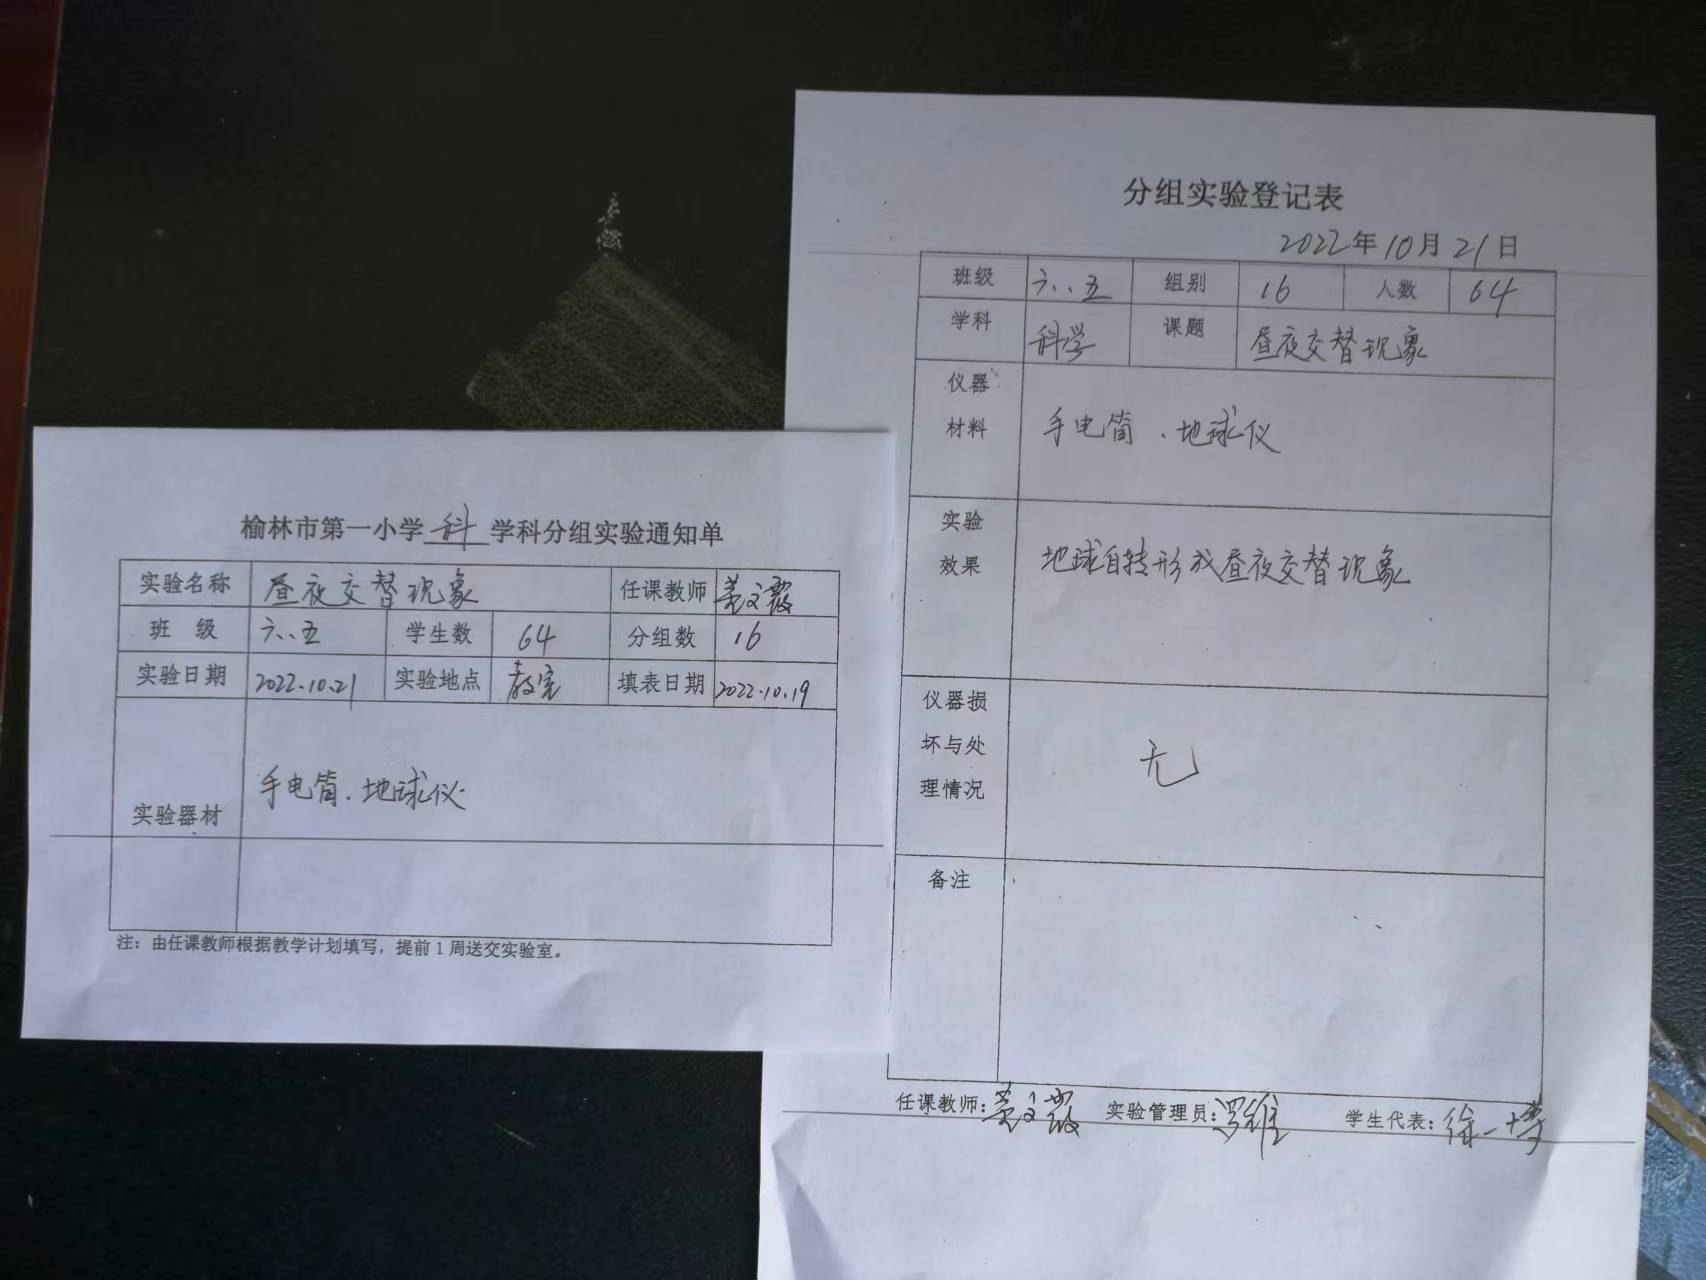 榆林市第一小学 科 学科分组实验通知单
实验名称 昼夜交替现象 任课教师 文霞
班 级 六、五 学生数 64 分组数 16
实验日期 2022.10.21 实验地点 教室 填表日期 2022.10.19
实验器材 手电筒、地球仪
注：由任课教师根据教学计划填写，提前1周送交实验室。
分组实验登记表
2022年10月21日
班级 六、五 组别 16 人数 64
学科 科学 课题 昼夜交替现象
仪器
材料 手电筒、地球仪
实验
效果 地球自转形成昼夜交替现象
仪器损
坏与处 无
理情况
备注
任课教师： 文霞 实验管理员：罗维 学生代表：徐一博